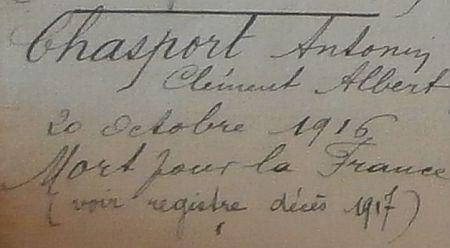 Chasport Antonin
Clément Albert
20 Octobre 1916
Mort pour la France
(voir registre décès 1917)